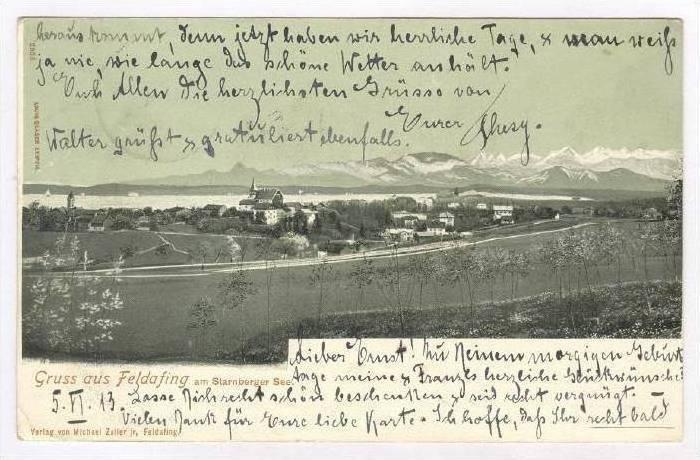 heraus kommt, denn jetzt haben wir herrliche Tage, & man weiß
ja nie, wie lange das schöne Wetter anhält.
Euch Allen die herzlichsten Grüsse von
Eurer Thesy.
Walter grüßt & gratuliert ebenfalls.
LOUIS GLASER LEIPZIG
Gruss aus Feldafing am Starnberger See.
Lieber Ernst! Zu Deinem morgigen Geburts
tage meine & Franzls herzliche Glückwünsche!
5. VI. 13. Lasse Dich recht schön beschenken & seid recht vergnügt. –
Vielen Dank für Eure liebe Karte. Ich hoffe, daß Ihr recht bald
Verlag von Michael Zaller jr, Feldafing